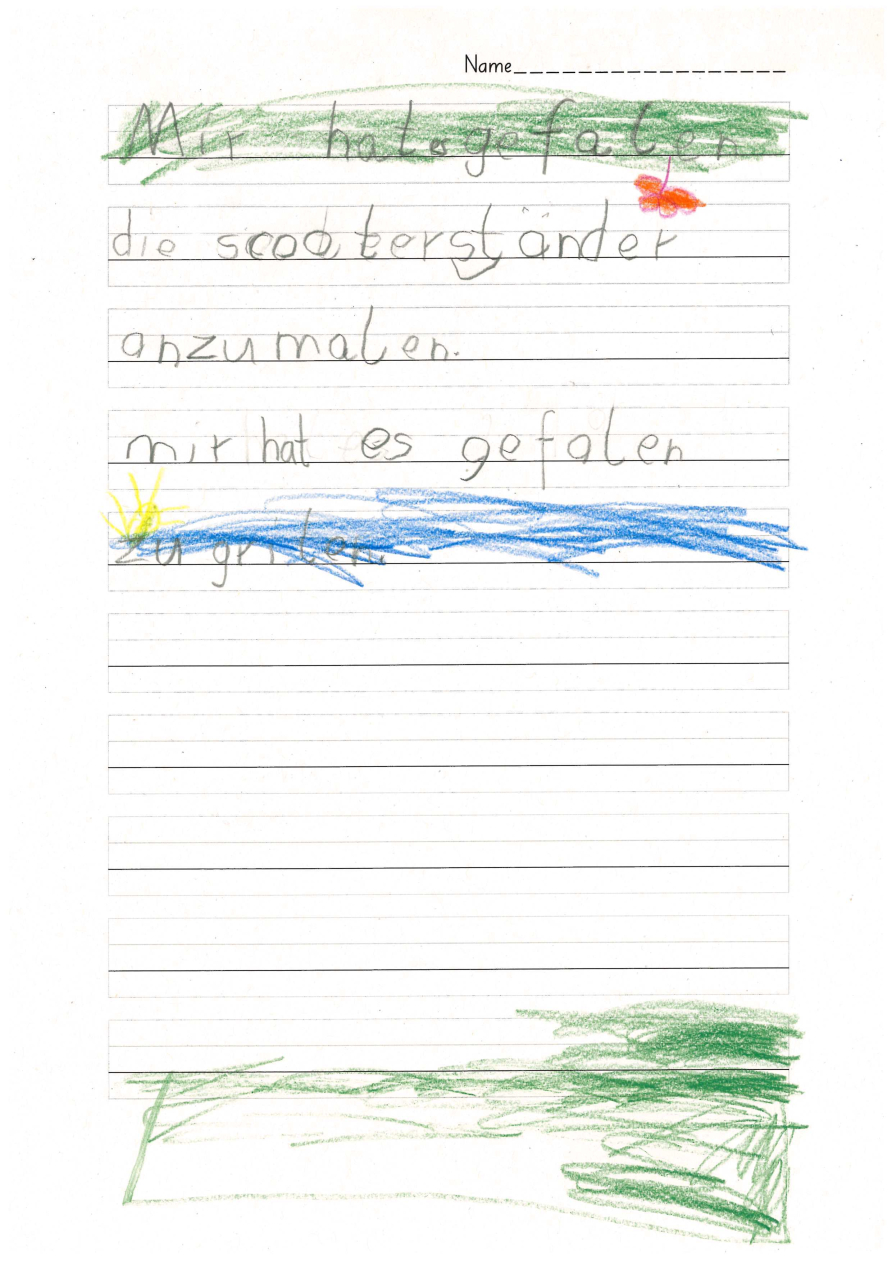 Name
Mir hat gefalen
die scooterständer
anzumalen.
mir hat es gefalen
zu grilen.